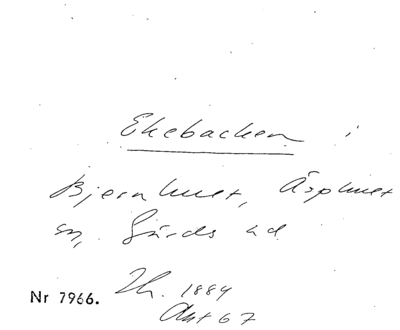 Ekebacken i
Bjernhult, Äsphult
sn, Gärds hd
Th. 1884
Akt 67
Nr 7966.